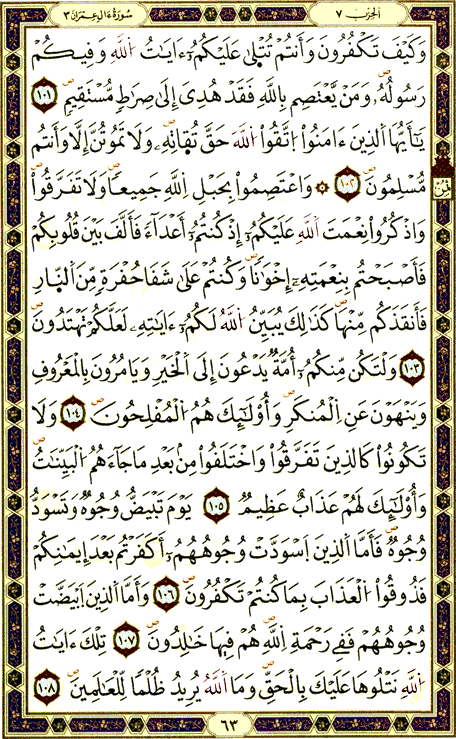 سُورَةُ ءَالِ عِمْرَانَ ٣
الحِزبُ ٧
وَكَيْفَ تَكْفُرُونَ وَأَنتُمْ تُتْلَىٰ عَلَيْكُمُۥٓ ءَايَٰتُ اُ۬للَّهِ وَفِيكُمْ
رَسُولُهُۥ وَمَنْ يَّعْتَصِم بِاللَّهِ فَقَدْ هُدِىَ إِلَىٰ صِرَٰطٍ مُّسْتَقِيمٍ ١٠١
يَٰٓأَيُّهَا اَ۬لذِينَ ءَامَنُواْ اُ۪تَّقُواْ اُ۬للَّهَ حَقَّ تُقَاتِهِۦ وَلَا تَمُوتُنَّ إِلَّا وَأَنتُم
مُّسْلِمُونَ ١٠٢ ۞ وَاعْتَصِمُواْ بِحَبْلِ اِ۬للَّهِ جَمِيعًا وَلَا تَفَرَّقُواْ
وَاذْكُرُواْ نِعْمَتَ اَ۬للَّهِ عَلَيْكُمُۥٓ إِذْ كُنتُمُۥٓ أَعْدَآءً فَأَلَّفَ بَيْنَ قُلُوبِكُمْ
فَأَصْبَحْتُم بِنِعْمَتِهِۦٓ إِخْوَٰنًا وَكُنتُمْ عَلَىٰ شَفَا حُفْرَةٍ مِّنَ اَ۬لنَّارِ
فَأَنقَذَكُم مِّنْهَا كَذَٰلِكَ يُبَيِّنُ اُ۬للَّهُ لَكُمُۥٓ ءَايَٰتِهِۦ لَعَلَّكُمْ تَهْتَدُونَ
١٠٣ وَلْتَكُن مِّنكُمُۥٓ أُمَّةٌ يَدْعُونَ إِلَى اَ۬لْخَيْرِ وَيَامُرُونَ بِالْمَعْرُوفِ
وَيَنْهَوْنَ عَنِ اِ۬لْمُنكَرِ وَأُوْلَٰٓئِكَ هُمُ اُ۬لْمُفْلِحُونَ ١٠٤ وَلَا
تَكُونُواْ كَالذِينَ تَفَرَّقُواْ وَاخْتَلَفُواْ مِنۢ بَعْدِ مَا جَآءَهُمُ اُ۬لْبَيِّنَٰتُ
وَأُوْلَٰٓئِكَ لَهُمْ عَذَابٌ عَظِيمٌ ١٠٥ يَوْمَ تَبْيَضُّ وُجُوهٌ وَتَسْوَدُّ
وُجُوهٌ فَأَمَّا اَ۬لذِينَ اَ۪سْوَدَّتْ وُجُوهُهُمُۥٓ أَكَفَرْتُم بَعْدَ إِيمَٰنِكُمْ
فَذُوقُواْ اُ۬لْعَذَابَ بِمَا كُنتُمْ تَكْفُرُونَ ١٠٦ وَأَمَّا اَ۬لذِينَ اَ۪بْيَضَّتْ
وُجُوهُهُمْ فَفِى رَحْمَةِ اِ۬للَّهِ هُمْ فِيهَا خَٰلِدُونَ ١٠٧ تِلْكَ ءَايَٰتُ
اُ۬للَّهِ نَتْلُوهَا عَلَيْكَ بِالْحَقِّ وَمَا اَ۬للَّهُ يُرِيدُ ظُلْمًا لِّلْعَٰلَمِينَ ١٠٨
ثُمُن
٦٣